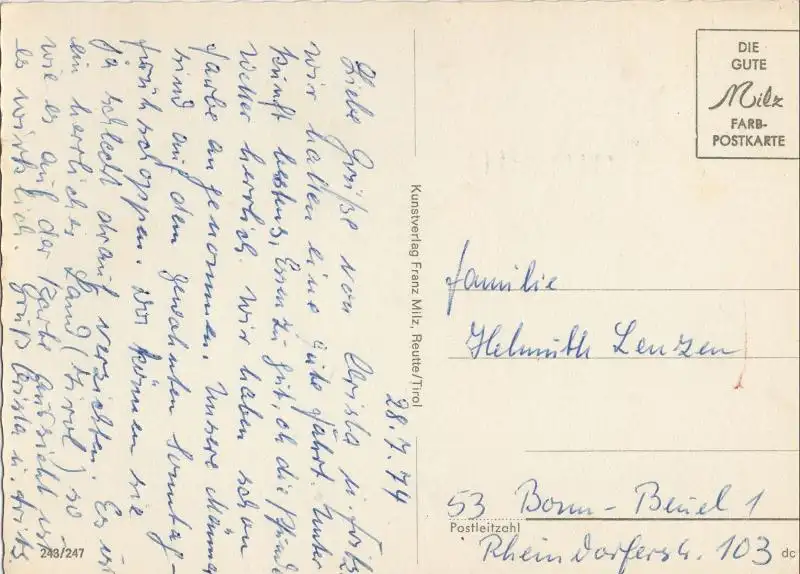 28.7.74
Liebe Grüße von Christa u. Fritz.
wir hatten eine gute Fahrt. Unter
kunft bestens, Essen zu gut, oh die Pfunde
Wetter herrlich. Wir haben schon
Farbe angenommen. Unsere Männer
sind auf dem gewohnten Sonntag-
frühschoppen. können sie
ja schlecht drauf verzichten. Es ist
ein herrliches Land (Tirol) so
wie es auf der Karte aussieht ist
es wirklich. Gruß Christa u. Fritz
243/247
Kunstverlag Franz Milz, Reutte/Tirol
DIE
GUTE
Milz
FARB-
POSTKARTE
Familie
Helmuth Lenzen
53 Bonn-Beuel 1
Postleitzahl
Rheindorferstr. 103
dc